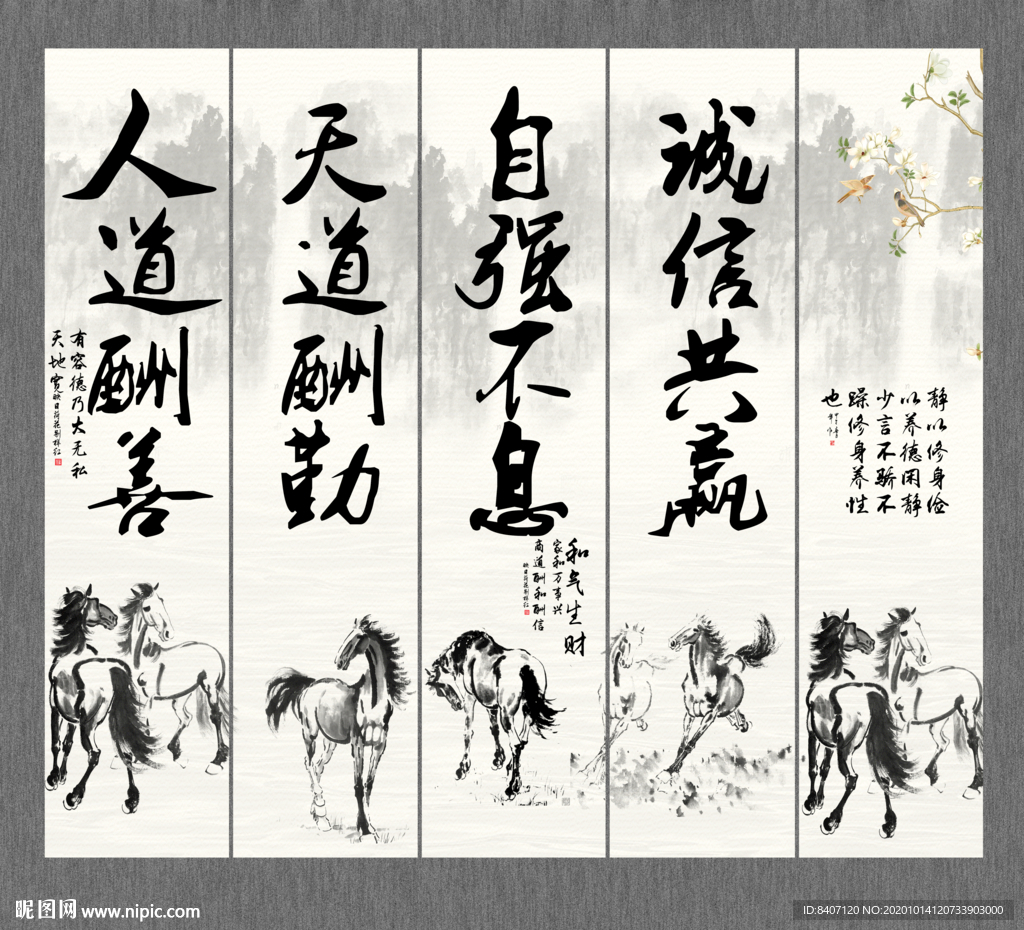 人道酬善
有容德乃大无私
天地宽
映日荷花别样红
天道酬勤
自强不息
和气生财
家和万事兴
商道酬和酬信
映日荷花别样红
诚信共赢
静以修身俭
以养德闲静
少言不骄不
躁修身养性
也
昵图网 www.nipic.com
ID:8407120 NO:20201014120733903000